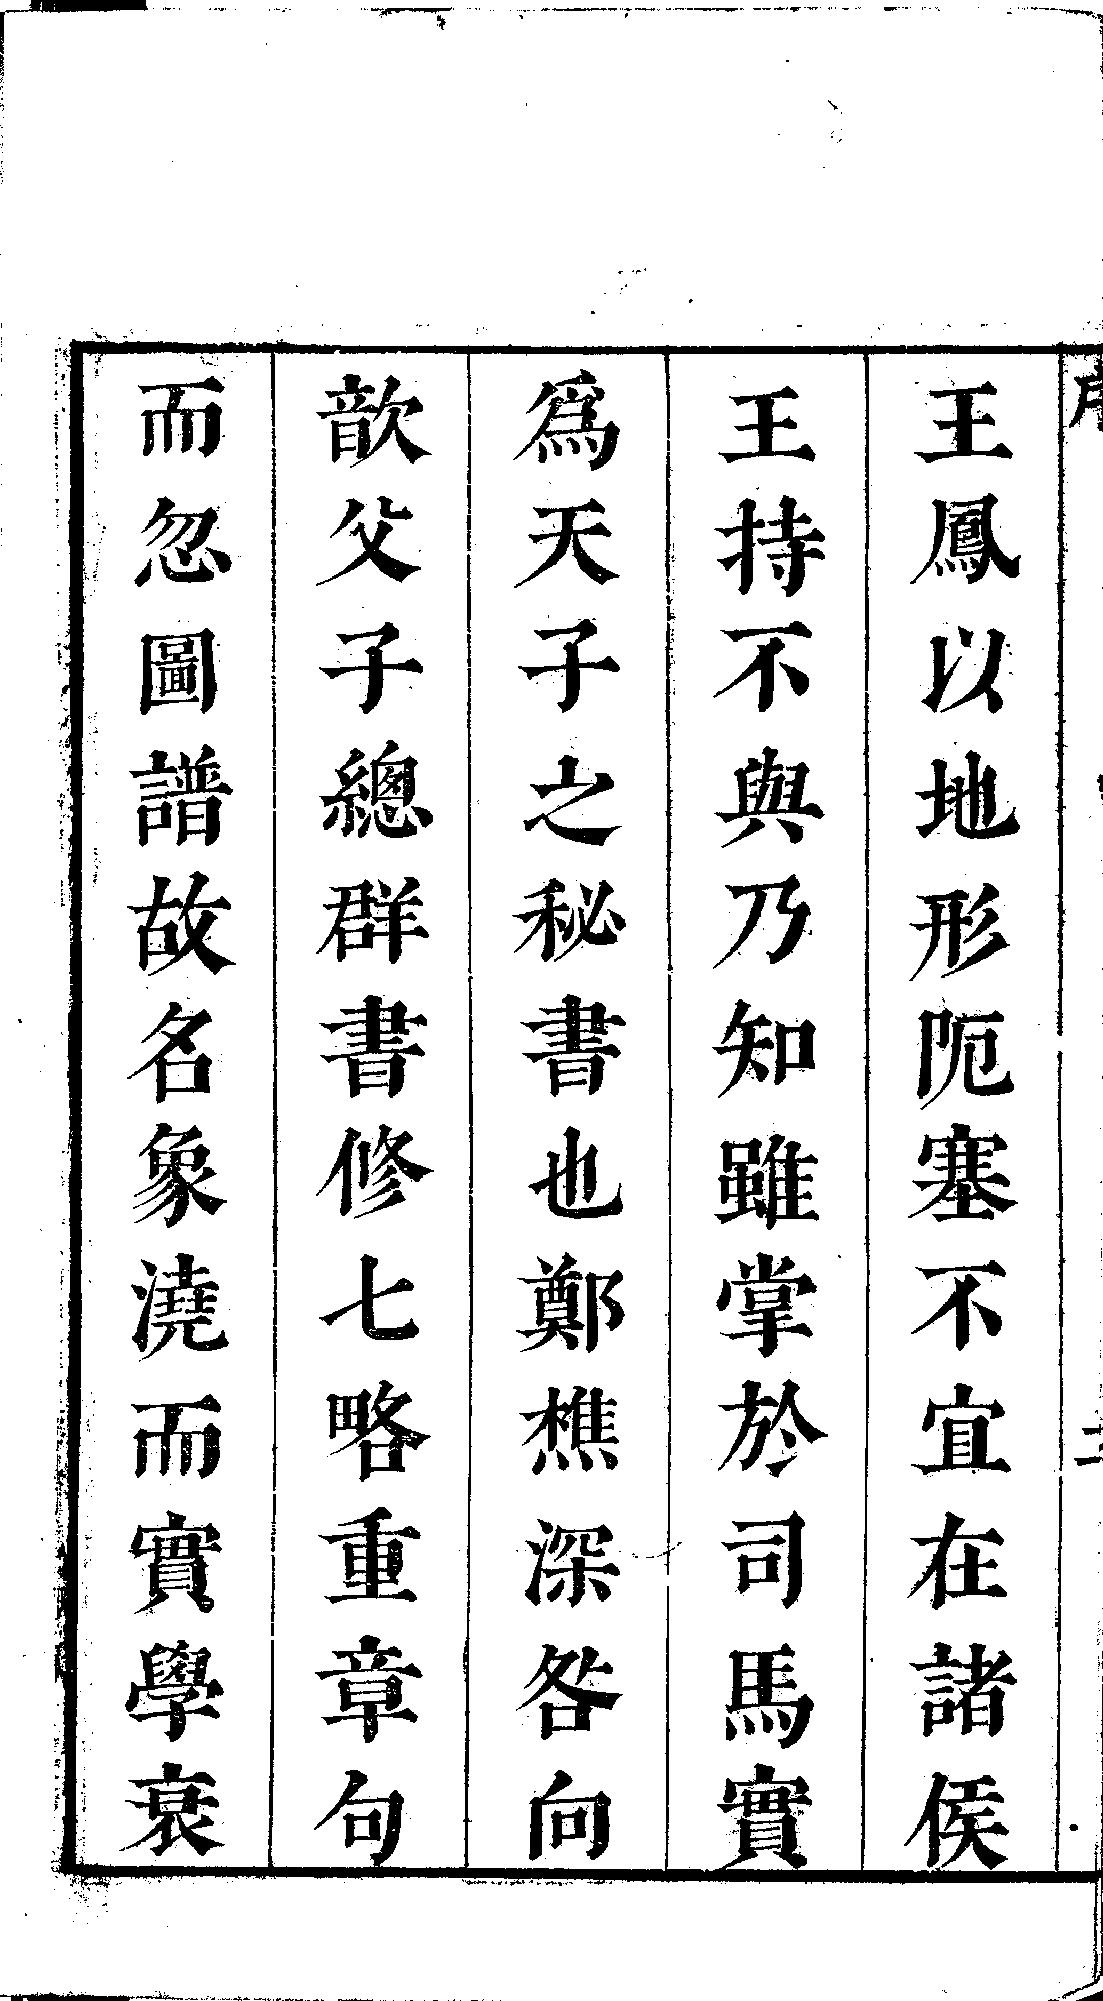 王鳳以地形阨塞不宜在諸侯
王持不與乃知雖掌於司馬實
爲天子之秘書也鄭樵深咎向
歆父子總群書修七略重章句
而忽圖譜故名象澆而實學衰